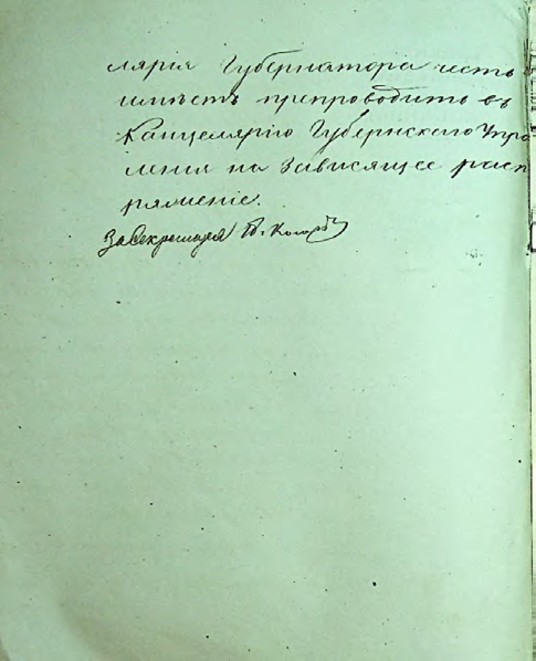 лярія Губернатора честь
имѣетъ препроводить въ
Канцелярію Губернскаго Упра
ленія на зависящее расп
ряженіе.
За Секретаря